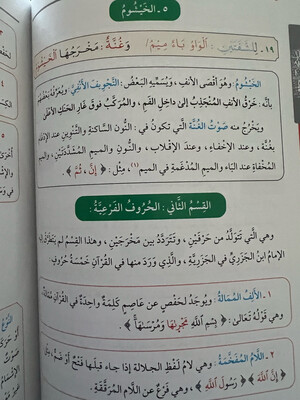 ٥ ـ الخَيْشُومُ
١٩ ـ لِلشَّفَتَيْنِ الْوَاوُ بَاءٌ مِيمُ / وَغُنَّةٌ: مَخْرَجُهَا الْخَيْشُومُ
الخَيْشُومُ: وهُوَ أقصَى الأنفِ، ويُسَمِّيهِ البَعْضُ: (التَّجْوِيفَ الأنْفِيَّ)، ويُعَرِّفُهُ بَعْضُهُم
بِأنَّهُ: خَرْقُ الأنفِ المُنْجَذِبُ إلى داخِلِ الفَمِ، والمُرَكَّبُ فوقَ غَارِ الحَنَكِ الأعْلَى
ويَخْرُجُ منه صَوْتُ الغُنَّةِ التي تكونُ في: النُّونِ السَّاكِنةِ والتَّنْوِينِ عند الإدْغَامِ
بغُنَّة، وعند الإخفاءِ، وعندَ الإقلابِ، والنُّونِ والميمِ المُشَدَّدَتَيْنِ، والميمِ
المُخْفَاةِ عندَ الباءِ والميمِ المُدْغَمةِ في الميمِ(١)، مِثْلُ: ﴿ إنَّ، ثُمَّ ﴾.
القِسْمُ الثَّانِي: الحُرُوفُ الفَرْعِيَّةُ:
وهي الَّتي تَتَوَلَّدُ من حَرْفَيْنِ، وتَتَرَدَّدُ بين مَخْرَجَيْنِ، وهذا القِسْمُ لم يَتَطَرَّقْ إليه
الإمامُ ابنُ الجَزَرِيِّ في الجَزَرِيَّةِ، والَّذي وَرَدَ منها في القُرْآنِ خَمْسَةُ حُرُوفٍ:
١ ـ الألِفُ المُمَالَةُ: ويُوجَدُ لحَفْصٍ عن عَاصِمٍ كَلِمَةٌ واحِدَةٌ في القُرْآنِ مُمَالَةٌ،
وهي قَوْلُهُ تَعَالَى: ﴿ بِسْمِ ٱللَّهِ مَجْر۪ىٰهَا وَمُرْسَىٰهَآ ﴾.
٢ ـ اللَّامُ المُفَخَّمَةُ: وهي لامُ لَفْظِ الجلالة إذا جاء قبلَها فَتْحٌ أوْ ضَمٌّ، مِثْلُ:
﴿ إِنَّ ٱللَّهَ ﴾ ﴿ رَسُولُ ٱللَّهِ ﴾، وهي فَرْعٌ عن اللَّامِ المُرَقَّقَةِ.